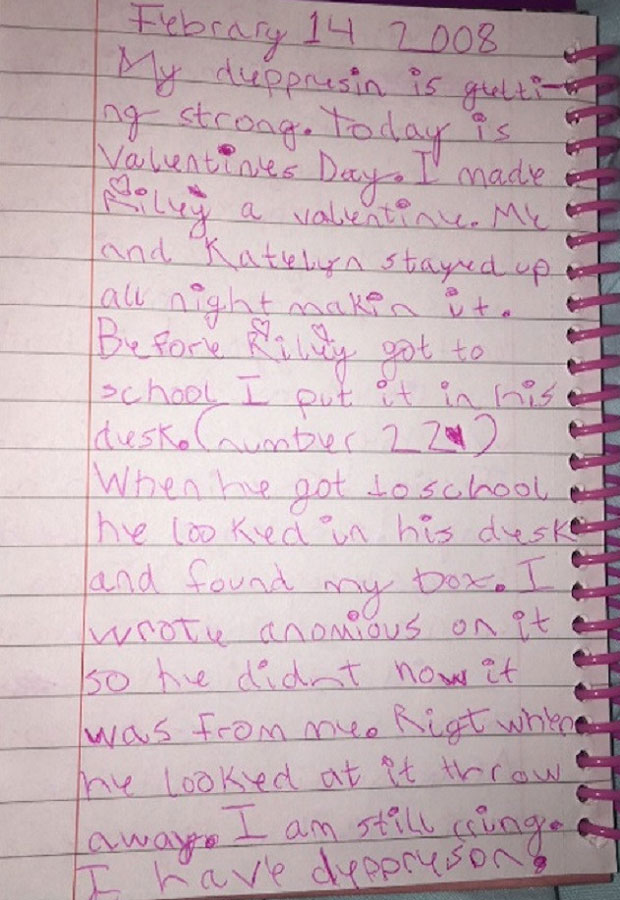 Febrary 14 2008
My deppresin is getti-
ng strong. Today is
Valentines Day. I made
Riley a valentine. Me
and Katelyn stayed up
all night makin it.
Before Riley got to
school I put it in his
desk. (number 22)
When he got to school
he looked in his desk
and found my box. I
wrote anomious on it
so he didnt now it
was from me. Rigt when
he looked at it throw
away. I am still criing.
I have deppreson.